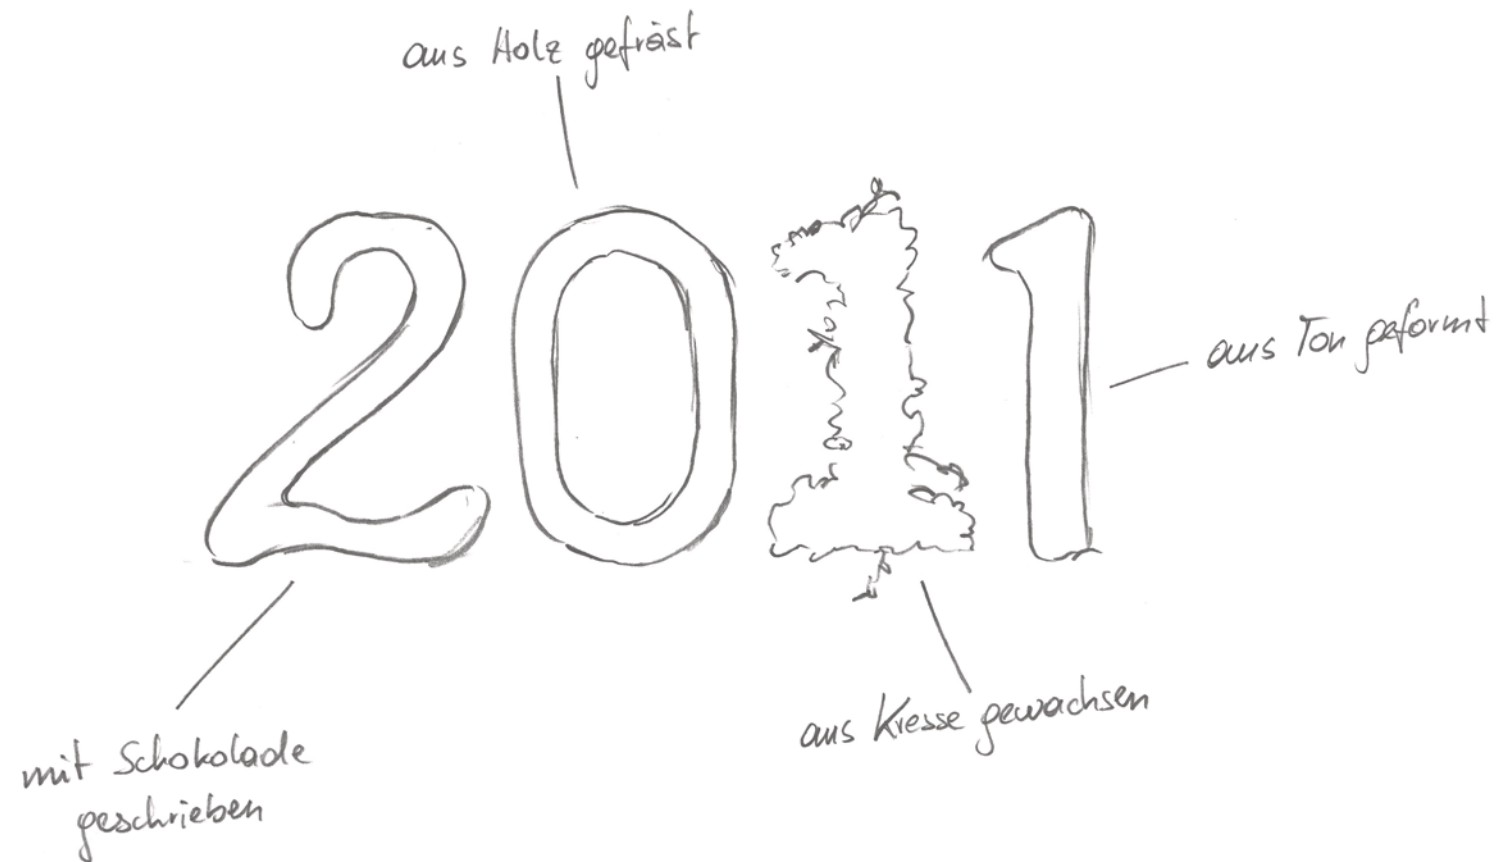 aus Holz gefräst
2011
aus Ton geformt
aus Kresse gewachsen
mit Schokolade
geschrieben